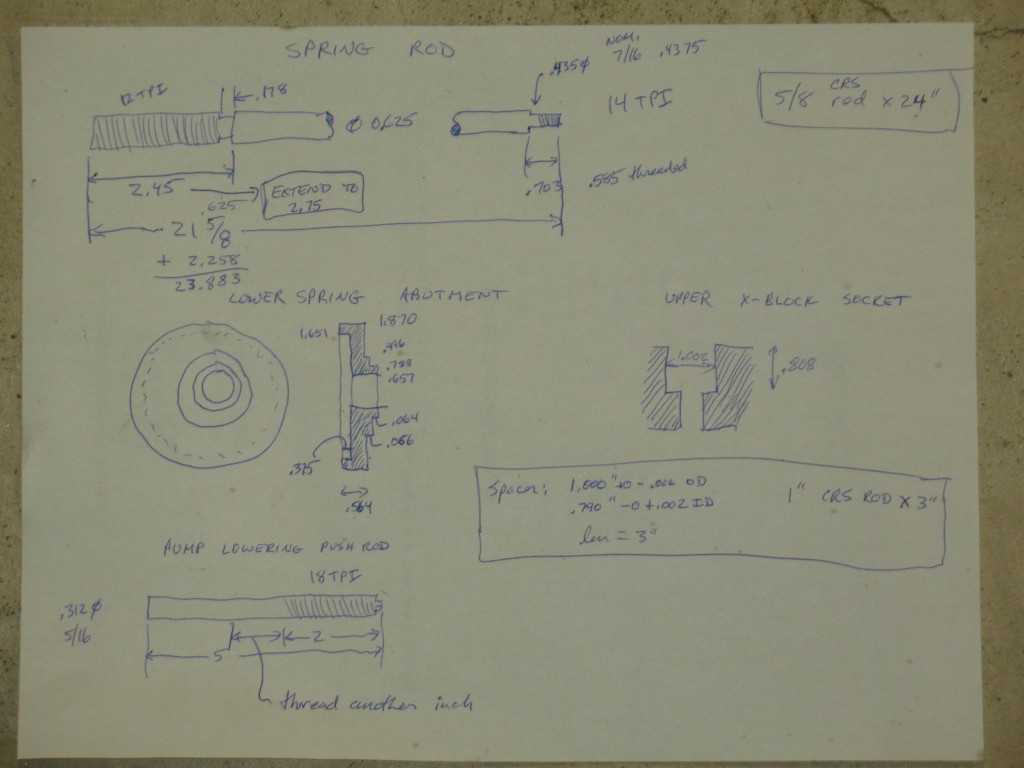 SPRING ROD
.435⌀
NOM.
7/16 .4375
12 TPI
.178
⌀ 0.625
14 TPI
5/8 CRS
rod x 24"
2.45
EXTEND TO
2.75
.703
.585 threaded
.625
21 5/8
+ 2.258
23.883
LOWER SPRING ABUTMENT
UPPER X-BLOCK SOCKET
1.651
1.870
.996
.788
.657
.064
.066
.375
.564
1.002
.808
Spacer: 1.000" +0 -.002 OD
.790" -0 +.002 ID
len = 3"
1" CRS ROD x 3"
PUMP LOWERING PUSH ROD
18 TPI
.312⌀
5/16
2
5
thread another inch